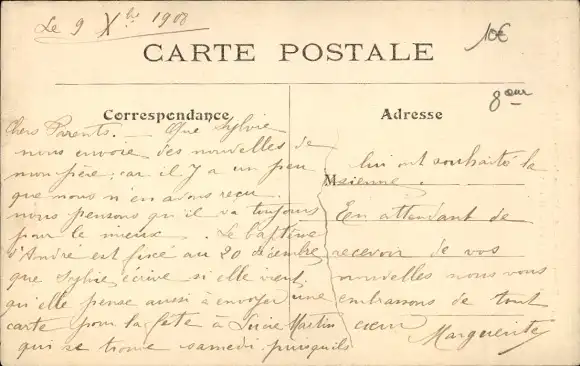 Le 9 Xbre 1908
10€
CARTE POSTALE
8eur
Correspondance
Adresse
Chers Parents. — Que Sylvie
nous envoie des nouvelles de
mon père, car il y a un peu
que nous n'en avons reçu
nous pensons qu'il va toujours
pour le mieux. Le baptême
d'André est fixé au 20 décembre
que Sylvie écrive si elle vient
qu'elle pense aussi à envoyer une
carte pour la fête à Lucie Martin
qui se trouve samedi puisqu'ils
lui ont souhaité la
M
sienne.
En attendant de
recevoir de vos
nouvelles nous vous
embrassons de tout
cœur
Marguerite